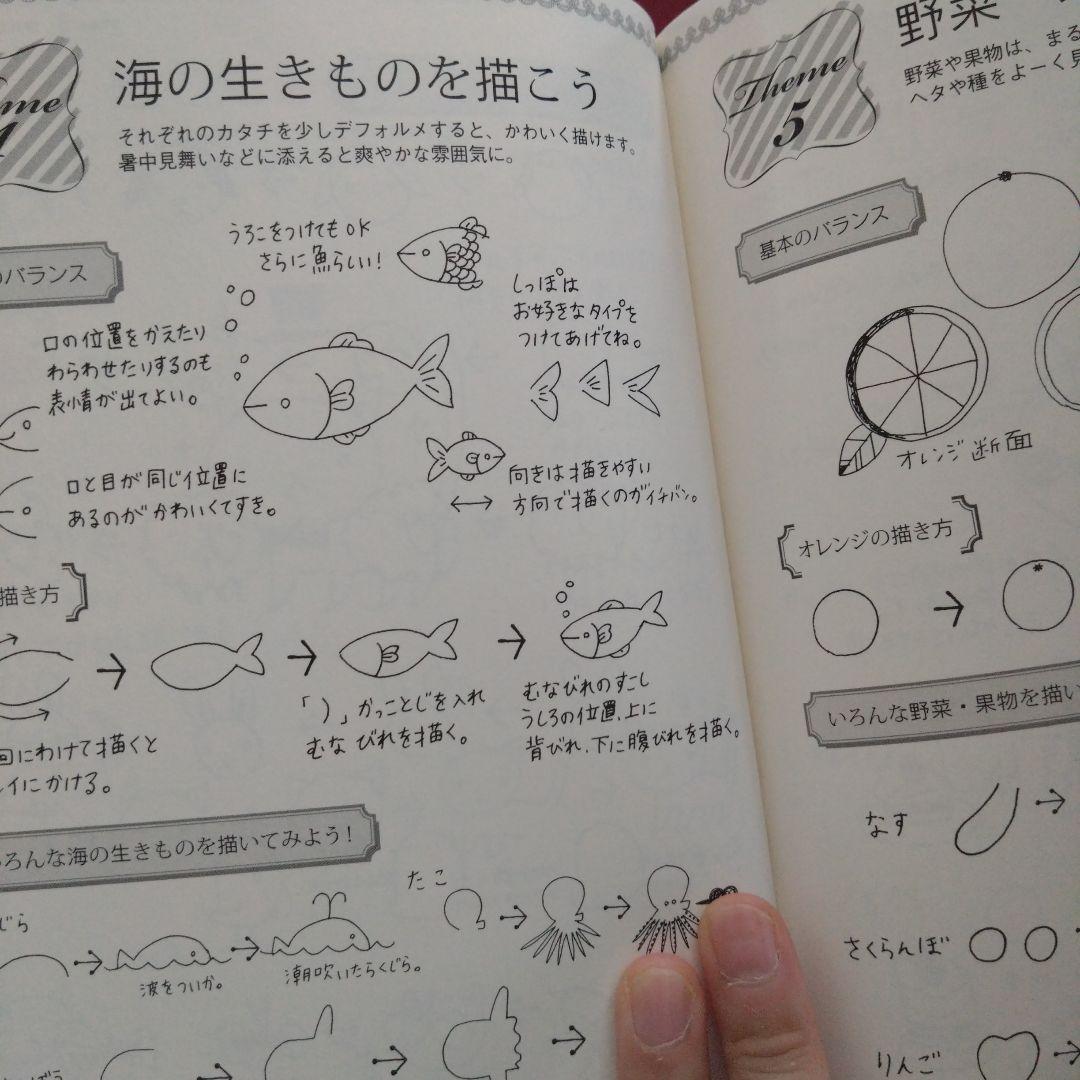 海の生きものを描こう
それぞれのカタチを少しデフォルメすると、かわいく描けます。
暑中見舞いなどに添えると爽やかな雰囲気に。
バランス
うろこをつけてもOK
さらに魚らしい!
口の位置をかえたり
わらわせたりするのも
表情が出てよい。
しっぽは
お好きなタイプを
つけてあげてね。
口と目が同じ位置に
あるのがかわいくてすき。
向きは描きやすい
方向で描くのがイチバン。
描き方
回にわけて描くと
レイにかける。
「)」かっことじを入れ
むなびれを描く。
むなびれのすこし
うしろの位置、上に
背びれ、下に腹びれを描く。
ろんな海の生きものを描いてみよう!
じら
波をついか。
潮吹いたらくじら。
たこ
Theme
5
野菜
野菜や果物は、まる
ヘタや種をよーく見
基本のバランス
オレンジ断面
オレンジの描き方
いろんな野菜・果物を描い
なす
さくらんぼ
りんご